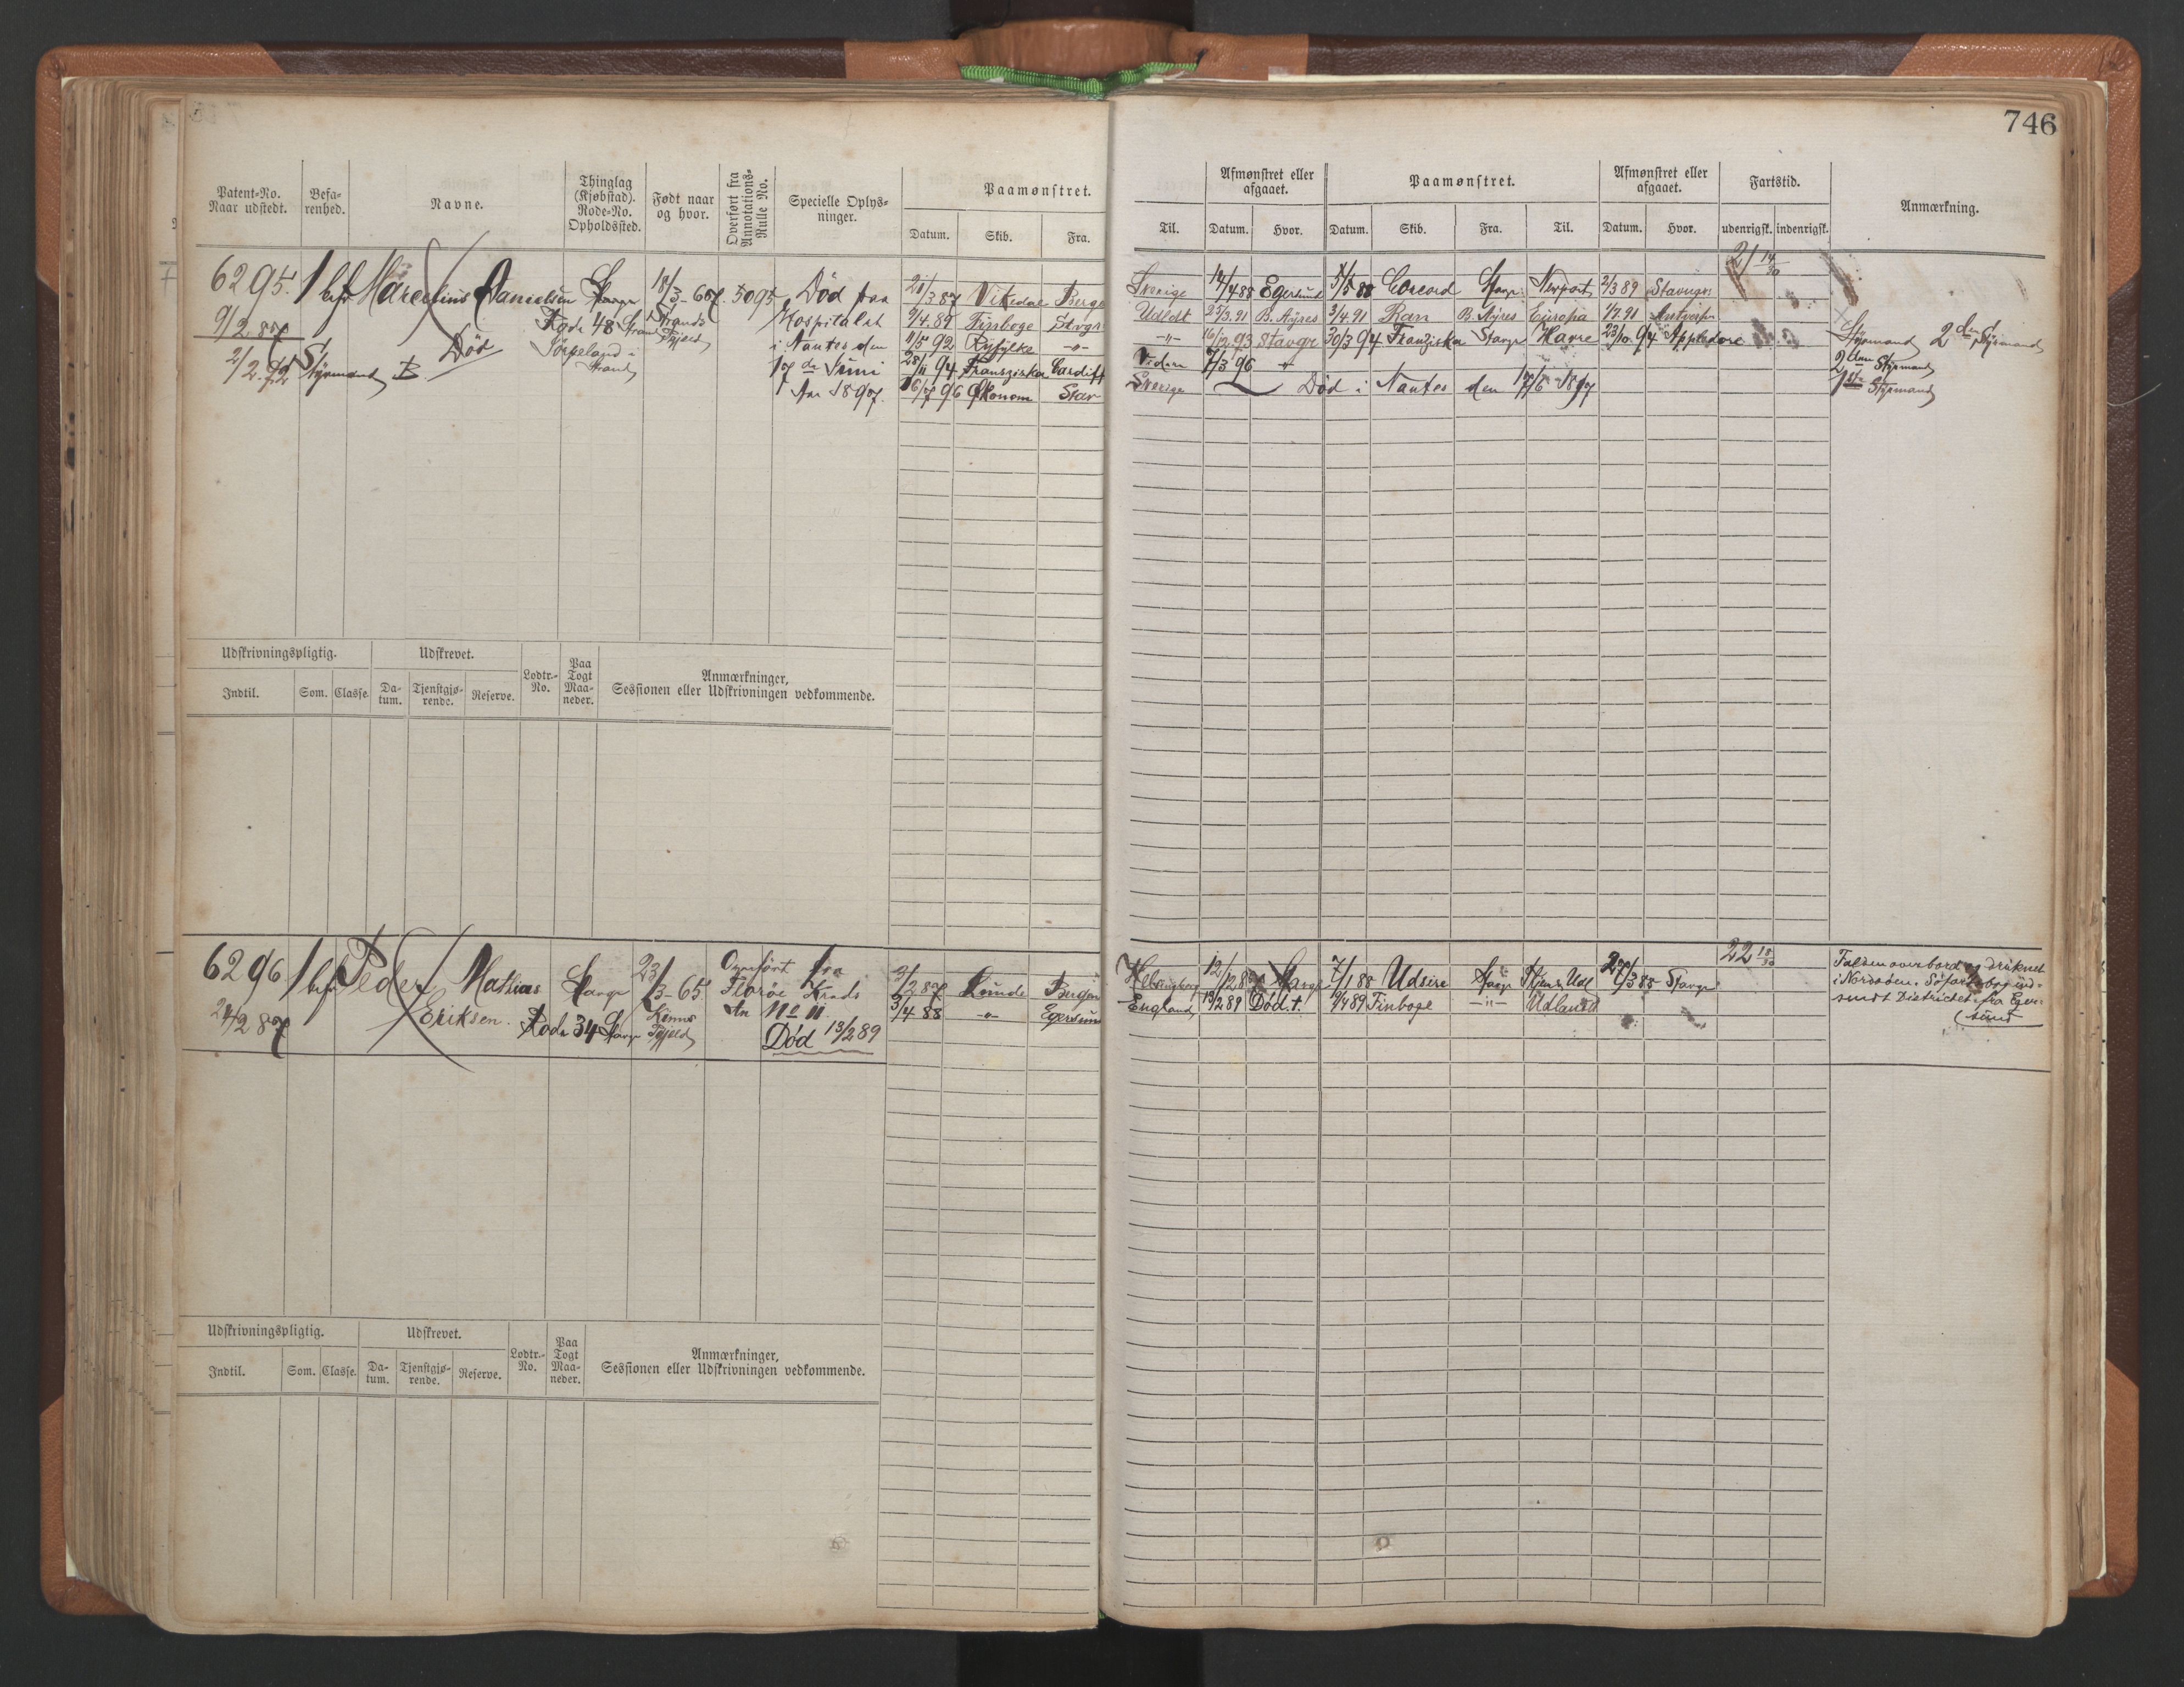 746
Patent-No. Naar udstedt. Befa-renhed. Navne. Thinglag (Kjøbstad). Rode-No. Opholdssted. Født naar og hvor. Overført fra Annotations-Rulle No. Specielle Oplys-ninger. Paamønstret.
Datum. Skib. Fra.
Afmønstret eller afgaaet. Paamønstret. Afmønstret eller afgaaet. Fartstid. Anmærkning.
Til. Datum. Hvor. Datum. Skib. Fra. Til. Datum. Hvor. udenrigsk. indenrigsk.
6295. 1 bef Marcelius Danielsen Stavgr 18/3-667. 5095 Død paa
9/2.87 Rode 48 Strand Strands Hospitalet
2/2.92 Styrmand B Død Jørpeland i Tpjeld i Nantes den
Strand 17 de Juni
Aar 1897.
21/3 87 Vikedal Berge Sverige 14/4 88 Egersund 5/5 88 Concord Stavgr Newport 2/3 89 Stavngr. 21 14/30
9/4.89 Finboge Stavgr Udldt 25/3.91 B. Ayres 3/4.91 Ran B. Ayres Europa 1/7.91 Antverpen
11/5 92 Ryfylke -"- -"- 16/12 93 Stavgr 30/3 94 Franziska Stavgr Havre 23/10.94 Appledore Styrmand 2den Styrmand
28/11 94 Fransziska Cardiff Videre 7/3 96 " 2den Styrmand
16/7 96 Økonom Stav Sverige Død i Nantes den 17/6 1897 1ste Styrmand
Udskrivningspligtig. Udskrevet. Lodtr.-No. Paa Togt Maa-neder. Anmærkninger, Sessionen eller Udskrivningen vedkommende.
Indtil. Som. Classe. Da-tum. Tjenstgjø-rende. Reserve.
6296 1 bef Peder Mathias Stavgr 23/3-65 Overført fra
24/2 87 Eriksen. Rode 34 Stavgr Kinns Tpjeld Florøe Krads
An No 11.
Død 13/2 89
3/2 87 Lunde Bergen Helsingborg 12/12 87 Stavgr 7/1 88 Udsire Stavgr Kjøn& Udl 27/3 88 Stavgr 22 18/30
3/4 88 -"- Egersund England 13/2 89 Død.t. 9/4 89 Finboge -"- Udlandet
Falden overbord og druknet
i Nordsøen. Søfartsbog ind-
sendt Districtet fra Eger-
sund
Udskrivningspligtig. Udskrevet. Lodtr.-No. Paa Togt Maa-neder. Anmærkninger, Sessionen eller Udskrivningen vedkommende.
Indtil. Som. Classe. Da-tum. Tjenstgjø-rende. Reserve.